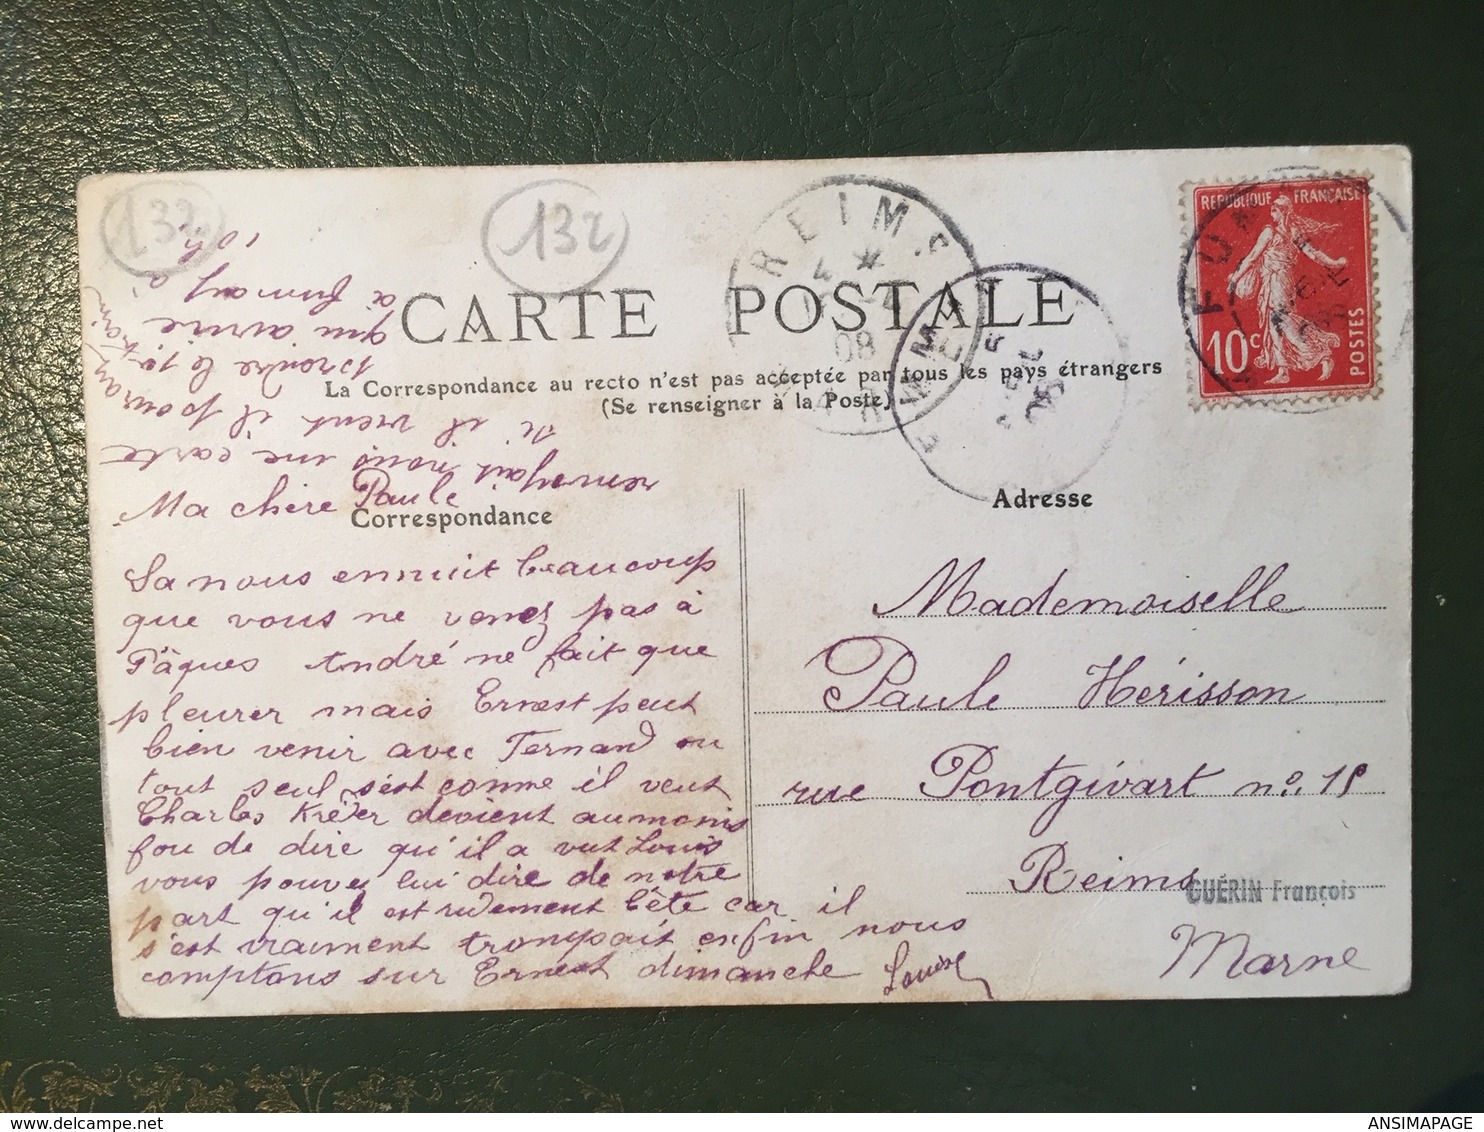 132
132
REIMS
08
FUMAY
08
FUMAY
REPUBLIQUE FRANÇAISE
10c
POSTES
CARTE POSTALE
La Correspondance au recto n'est pas acceptée par tous les pays étrangers
(Se renseigner à la Poste)
Correspondance
Adresse
Ma chère Paule
Sa nous ennuit beaucoup
que vous ne venez pas à
Pâques André ne fait que
pleurer mais Ernest peut
bien venir avec Fernand ou
tout seul s'est comme il veut
Charles devient aumoins
fou de dire qu'il a vut Louis
vous pouvez lui dire de notre
part qu'il est rudement bête car il
s'est vraiment trompait enfin nous
comptons sur Ernest dimanche Louise
renvoyait nous une carte
si il vient il pourrait
prendre le train
qui arrive
à fumay à
10h
Mademoiselle
Paule Hérisson
rue Pontgivart no 15
Reims
GUÉRIN François
Marne
ANSIMAPAGE